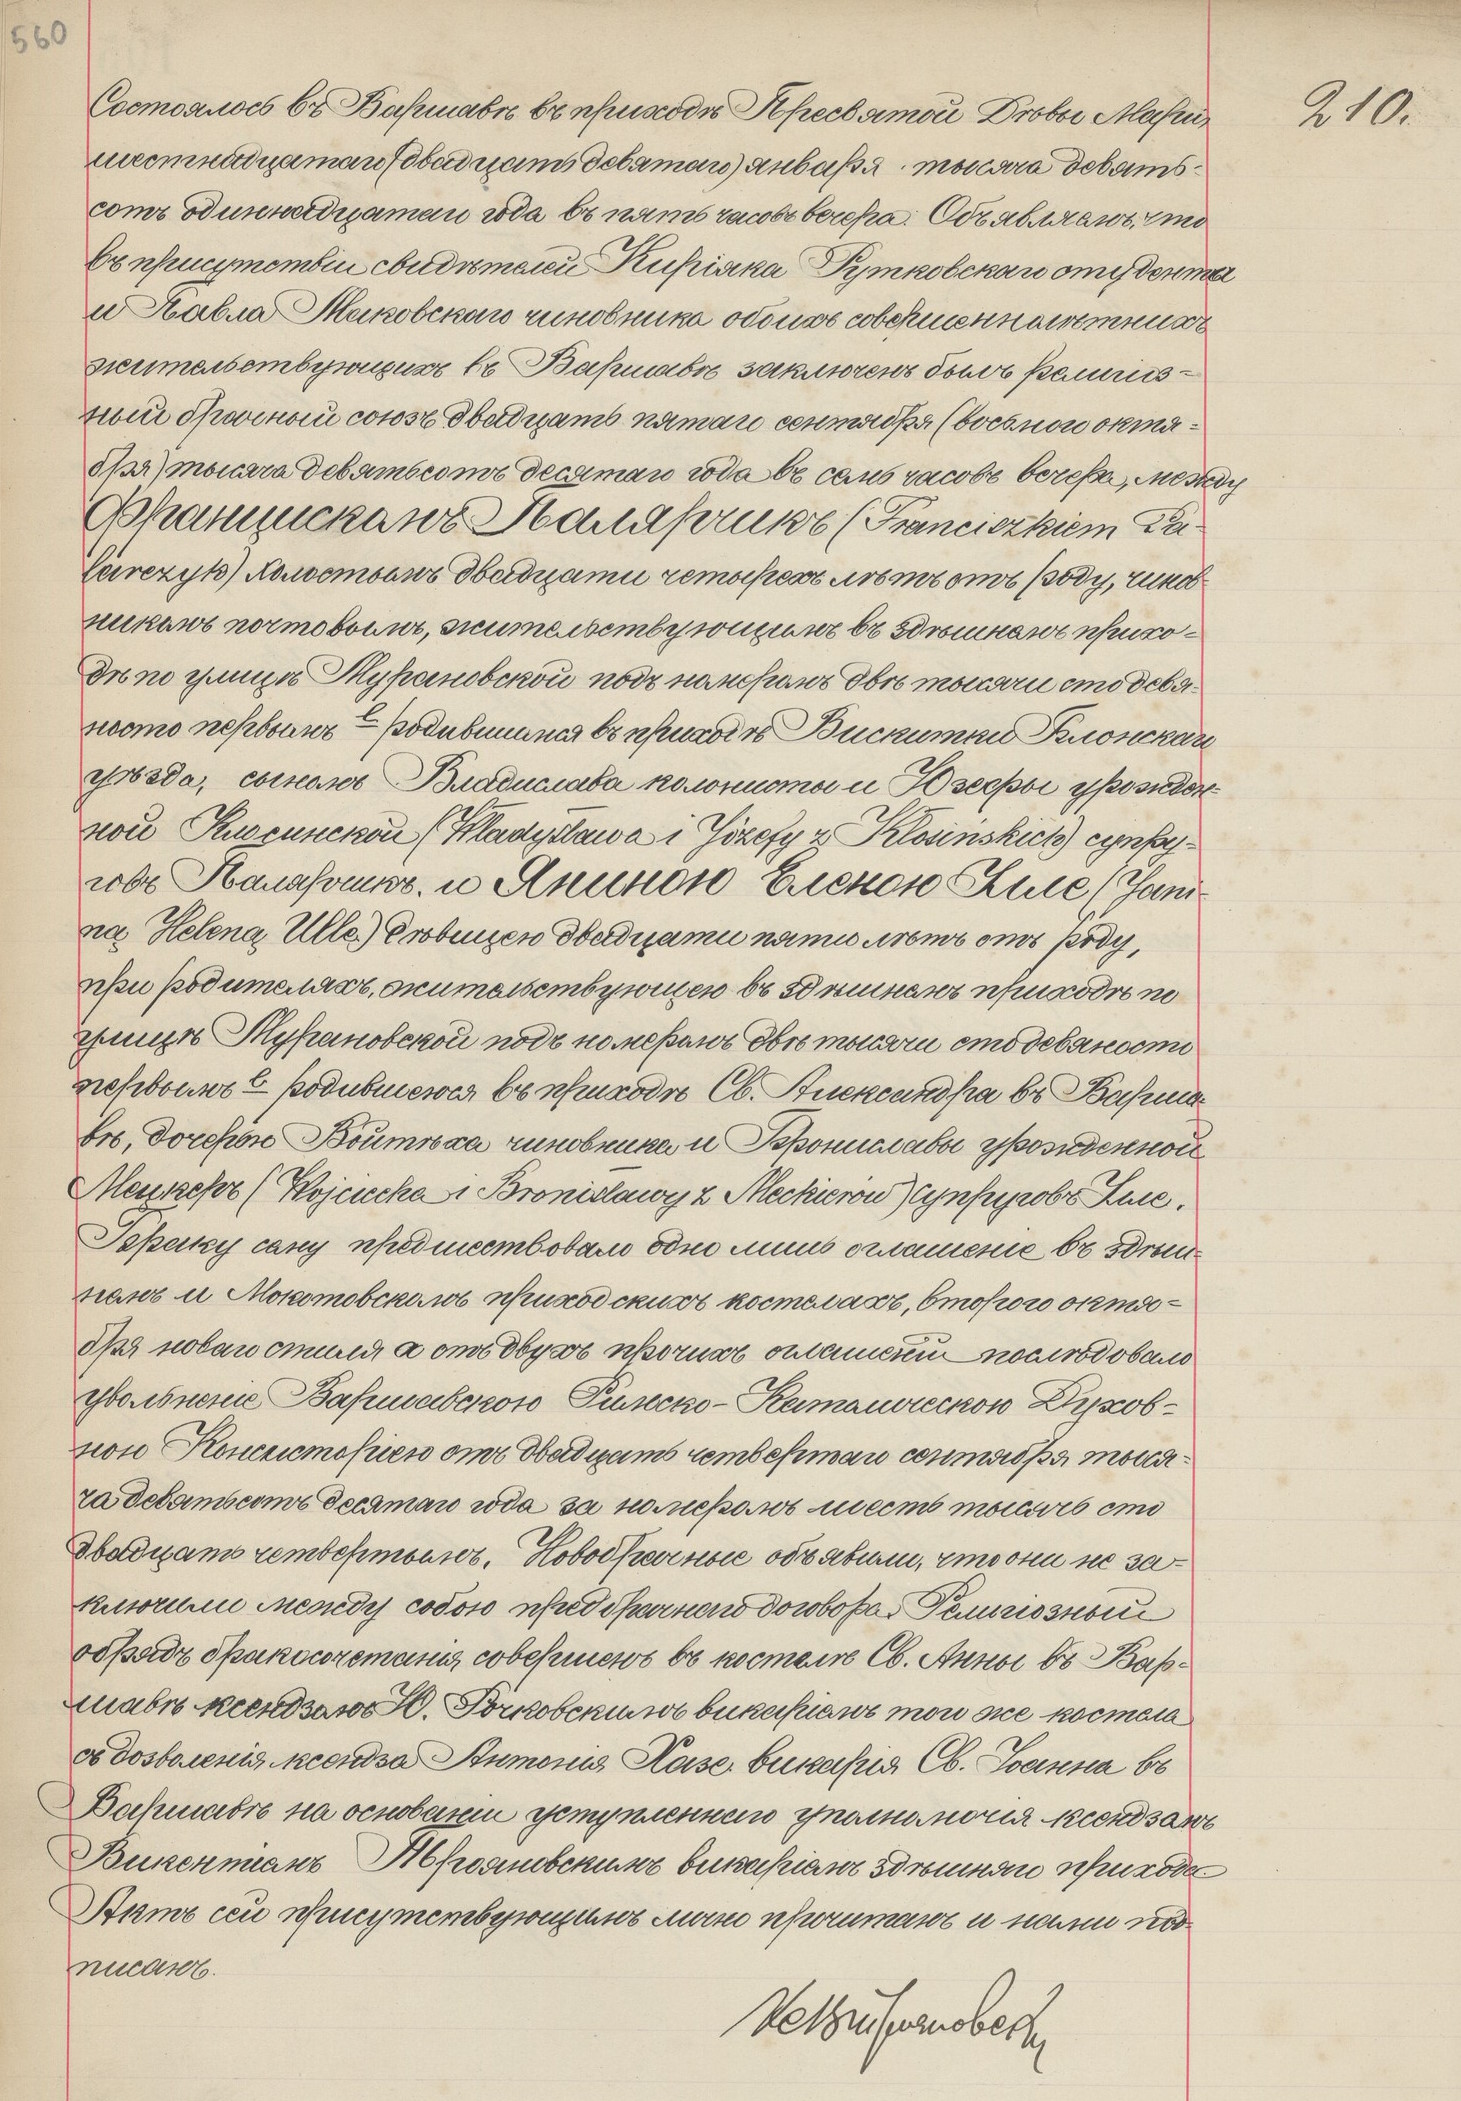 560
210.
Состоялось въ Варшавѣ въ приходѣ Пресвятой Дѣвы Маріи,
шестнадцатаго (двадцать девятаго) января тысяча девять-
сотъ одиннадцатаго года въ пять часовъ вечера. Объявляемъ, что
въ присутствіи свидѣтелей Киріяка Рутковскаго студента
и Павла Маковскаго чиновника обоихъ совершеннолѣтнихъ
жительствующихъ въ Варшавѣ заключенъ былъ религіоз-
ный брачный союзъ двадцать пятаго сентября (восьмого октя-
бря) тысяча девятьсотъ десятаго года въ семь часовъ вечера, между
Францискомъ Паларчикъ (Franciszkiem Pa-
larczyk) холостымъ двадцати четырехъ лѣтъ отъ роду, чинов
никомъ почтовымъ, жительствующимъ въ здѣшнемъ прихо-
дѣ по улицѣ Мурановской подъ номеромъ двѣ тысячи сто девя-
носто первымъ С родившимся въ приходѣ Вискитки Блонскаго
уѣзда, сыномъ Владислава колониста и Юзефы урожден-
ной Клосинской (Władysława i Józefy z Kłosinskich) супру-
говъ Паларчикъ. и Яниною Еленою Улле (Jani-
ną Heleną Ulle) дѣвицею двадцати пяти лѣтъ отъ роду,
при родителяхъ, жительствующею въ здѣшнемъ приходѣ по
улицѣ Мурановской подъ номеромъ двѣ тысячи сто девяносто
первымъ С родившеюся въ приходѣ Св. Александра въ Варша-
вѣ, дочерью Войтѣха чиновника и Брониславы урожденной
Мецкеръ (Wojciecha i Bronisławy z Meckierów) супруговъ Улле.
Браку сему предшествовало одно лишь оглашеніе въ здѣш-
немъ и Мокотовскомъ приходскихъ костелахъ, второго октя-
бря новаго стиля а отъ двухъ прочихъ оглашеній послѣдовало
увольненіе Варшавскою Римско-Католическою Духов-
ною Консисторіею отъ двадцать четвертаго сентября тыся-
ча девятьсотъ десятаго года за номеромъ шесть тысячъ сто
двадцать четвертымъ. Новобрачные объявили, что они не за-
ключили между собою предбрачнаго договора. Религіозный
обрядъ бракосочетанія совершенъ въ костелѣ Св. Анны въ Вар-
шавѣ ксендзомъ Ю. викаріемъ того же костела
съ дозволенія ксендза Антонія викарія Св. Іоанна въ
Варшавѣ на основаніи уступленнаго уполномочія ксендзомъ
Викентіемъ викаріемъ здѣшняго прихода
Актъ сей присутствующимъ мною прочитанъ и нами под
писанъ.